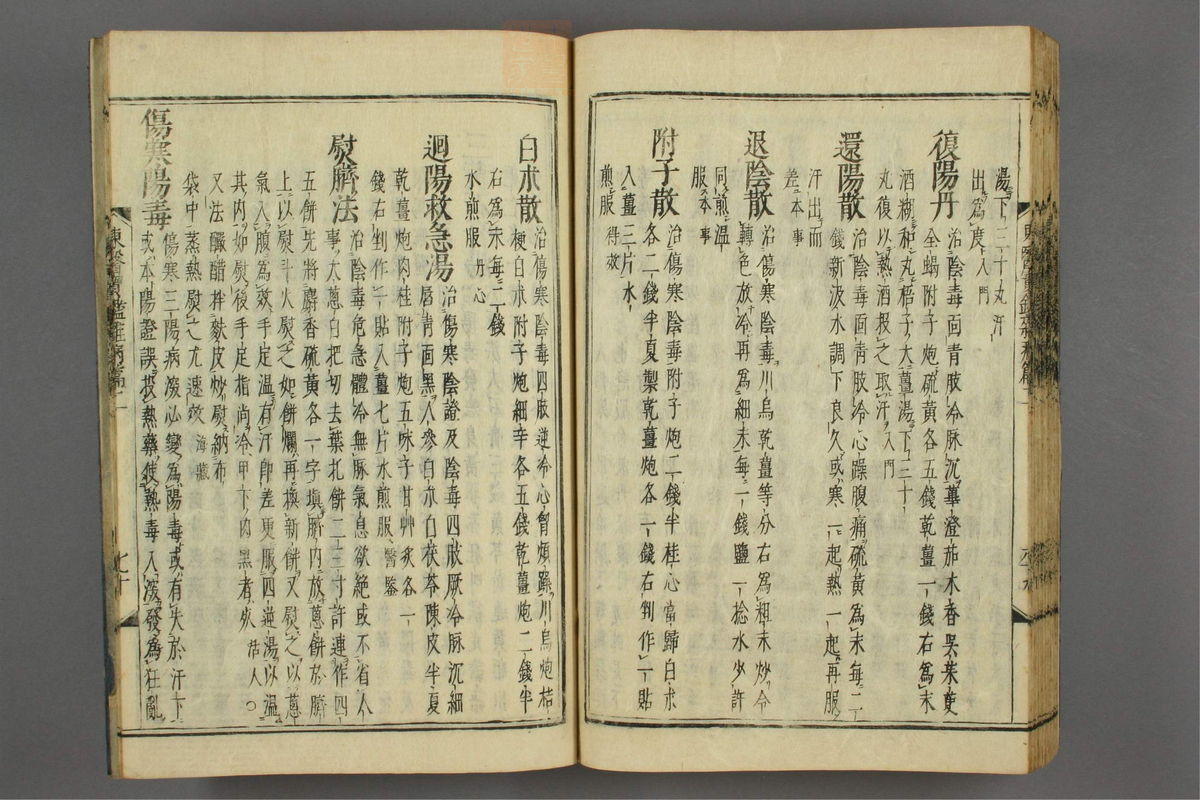 湯下三十丸汗
出爲度入門
復陽丹治陰毒面青肢冷脉沉蓽澄茄木香吳茱萸
全蝎附子炮硫黃各五錢乾薑一錢右爲末
酒糊和丸梧子大薑湯下三十
丸復以熱酒投之取汗入門
還陽散治陰毒面靑肢冷心躁腹痛硫黃爲末每二
錢新汲水調下良久或寒一起熱一起再服
汗出而
差本事
退陰散治傷寒陰毒川烏乾薑等分右爲粗末炒令
轉色放冷再爲細末每一錢鹽一捻水少許
同煎溫
服本事
附子散治傷寒陰毒附子炮二錢半桂心當歸白朮
各二錢半夏製乾薑炮各一錢右剉作一貼
入薑三片水
煎服得效
白朮散治傷寒陰毒四肢逆冷心胷煩躁川烏炮桔
梗白朮附子炮細辛各五錢乾薑炮二錢半
右爲末每二錢
水煎服丹心
迴陽救急湯治傷寒陰證及陰毒四肢厥冷脉沉細
唇靑面黑人參白朮白茯苓陳皮半夏
乾薑炮肉桂附子炮五味子甘艸灸各一
錢右剉作一貼入薑七片水煎服醫鑒
熨臍法治陰毒危急體冷無脉氣息欲絶或不省人
事大葱白把切去葉扎餅二三寸許連作四
五餅先將麝香硫黃各一字塡臍內放葱餅於臍
上以熨斗火熨之如餅爛再換新餅又熨之以葱
氣入腹爲效手足溫有汗卽差更服四逆湯以溫
其內如熨後手足指尙冷甲下肉黑者死活人○
又法釅醋拌麩皮炒熨納布
袋中蒸熱熨之尤速效海藏
傷寒陽毒傷寒三陽病深必變爲陽毒或有失於汗下
或本陽證誤投熱藥使熱毒入深發爲狂亂
東醫寶鑑雜病篇二